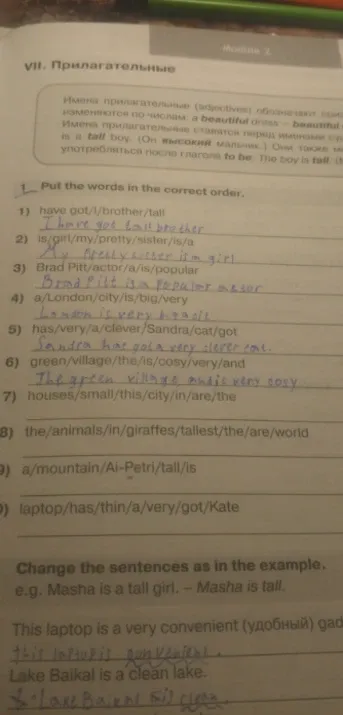 Модуль 2
VII. Прилагательные
Имена прилагательные (adjectives) обозначают
изменяются по числам: a beautiful dress – beautiful
Имена прилагательные ставятся перед именами
is a tall boy. (Он высокий мальчик.) Они также
употребляться после глагола to be: The boy is tall.
1 Put the words in the correct order.
1) have got/I/brother/tall
I have got tall brother
2) is/girl/my/pretty/sister/is/a
My pretty sister is a girl
3) Brad Pitt/actor/a/is/popular
Brad Pitt is a popular actor
4) a/London/city/is/big/very
London is very
5) has/very/a/clever/Sandra/cat/got
Sandra has got a very clever cat.
6) green/village/the/is/cosy/very/and
The green village and is very cosy
7) houses/small/this/city/in/are/the
8) the/animals/in/giraffes/tallest/the/are/world
9) a/mountain/Ai-Petri/tall/is
0) laptop/has/thin/a/very/got/Kate
Change the sentences as in the example.
e.g. Masha is a tall girl. – Masha is tall.
This laptop is a very convenient (удобный)
this laptop is convenient.
Lake Baikal is a clean lake.
Lake Baikal is clean.